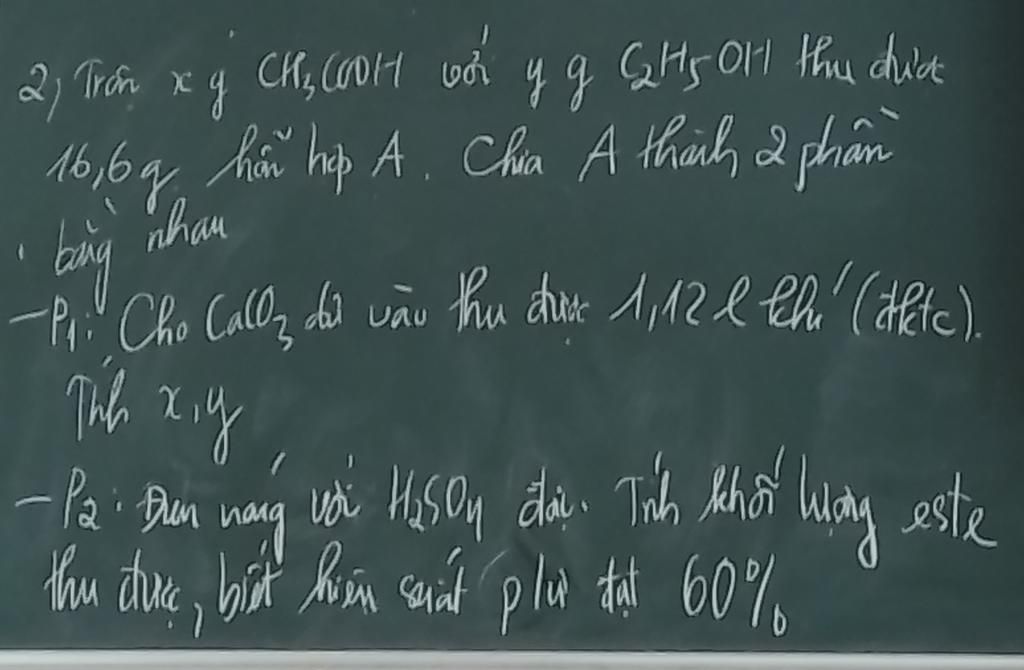 2) Trộn x g CH3COOH với y g C2H5OH thu được
16,6g hỗn hợp A. Chia A thành 2 phần
bằng nhau
- P1: Cho CaCO3 dư vào thu được 1,12 l khí (đktc).
Tính x, y
- P2: Đun nóng với H2SO4 đặc. Tính khối lượng este
thu được, biết hiệu suất pứ đạt 60%